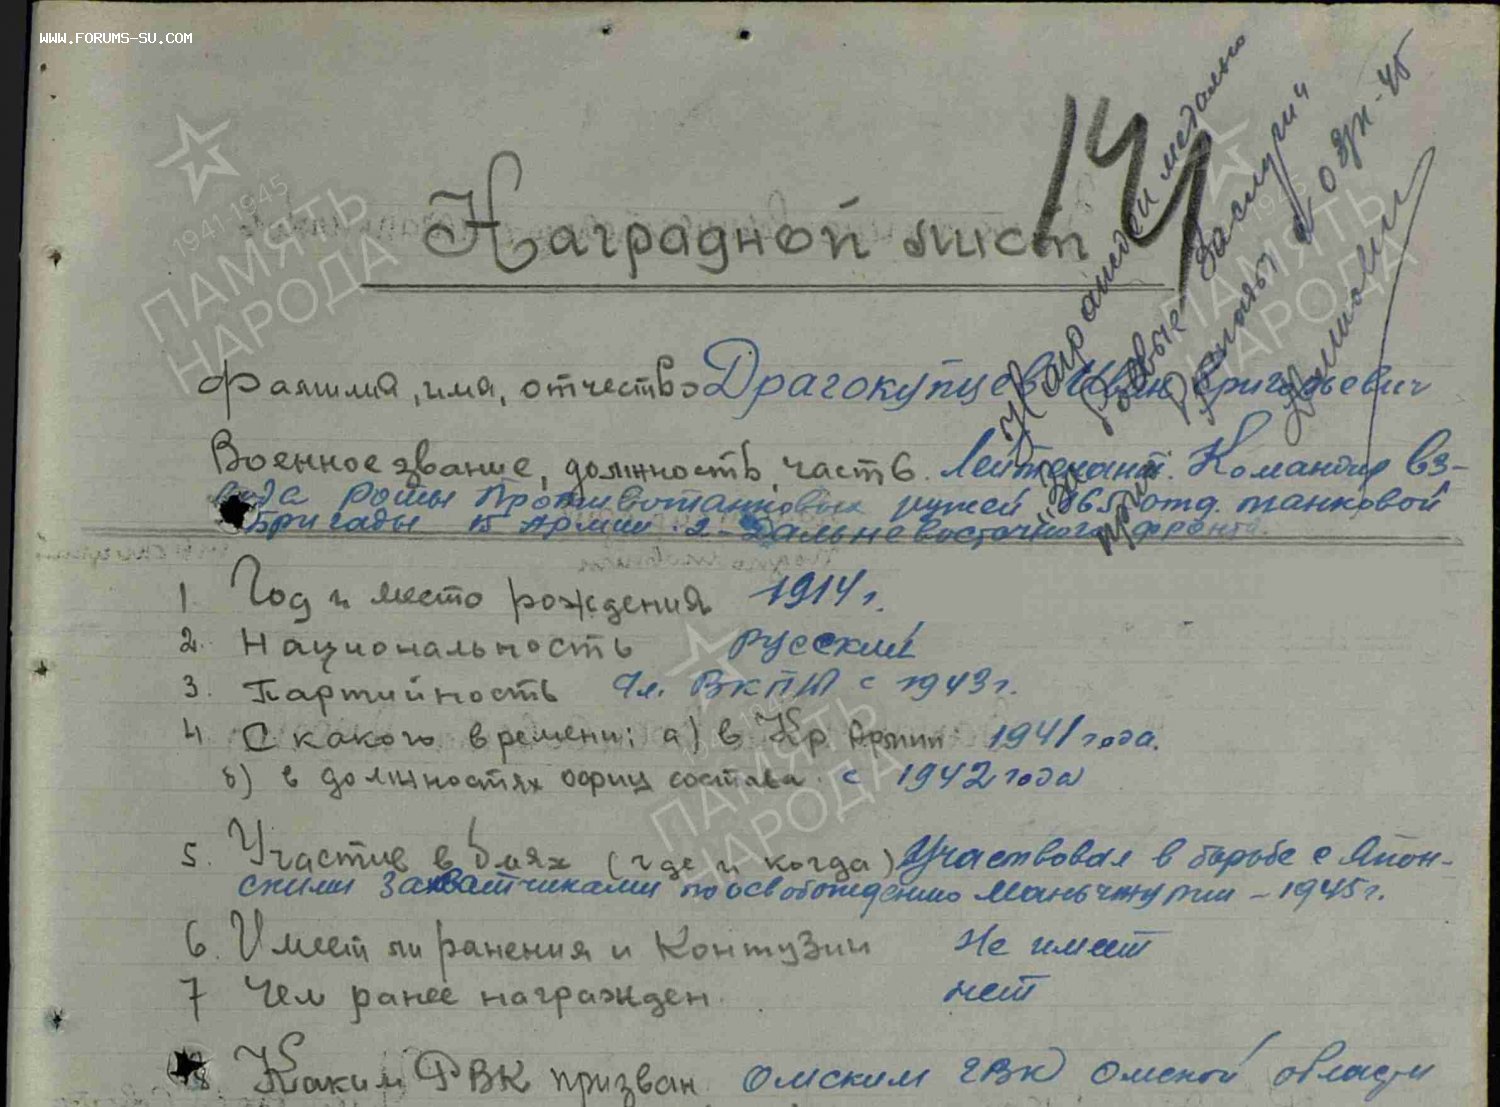 WWW.FORUMS-SU.COM
14
Награжден медалью
"За боевые заслуги"
Наградной лист
Фамилия, имя, отчество Драгокупцев Иван Григорьевич
Военное звание, должность, часть. Лейтенант. Командир вз-
вода роты Противотанковых ружей 165 отд. танковой
Бригады 15 Армии 2-Дальневосточного фронта.
1 Год и место рождения 1914 г.
2. Национальность русский
3. Партийность Чл. ВКП(б) с 1943 г.
4 С какого времени: а) в Кр. Армии 1941 года.
б) в должностях офиц состава с 1942 года
5. Участие в боях (где и когда) Участвовал в борьбе с Япон-
скими захватчиками по освобождению Маньчжурии – 1945 г.
6. Имеет ли ранения и контузии Не имеет
7 Чем ранее награжден. нет
8 Каким РВК призван Омским ГВК Омской области
1941-1945
ПАМЯТЬ
НАРОДА
1941-1945
ПАМЯТЬ
НАРОДА
1941-1945
ПАМЯТЬ
НАРОДА